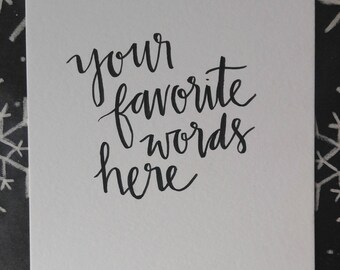 your
favorite
words
here